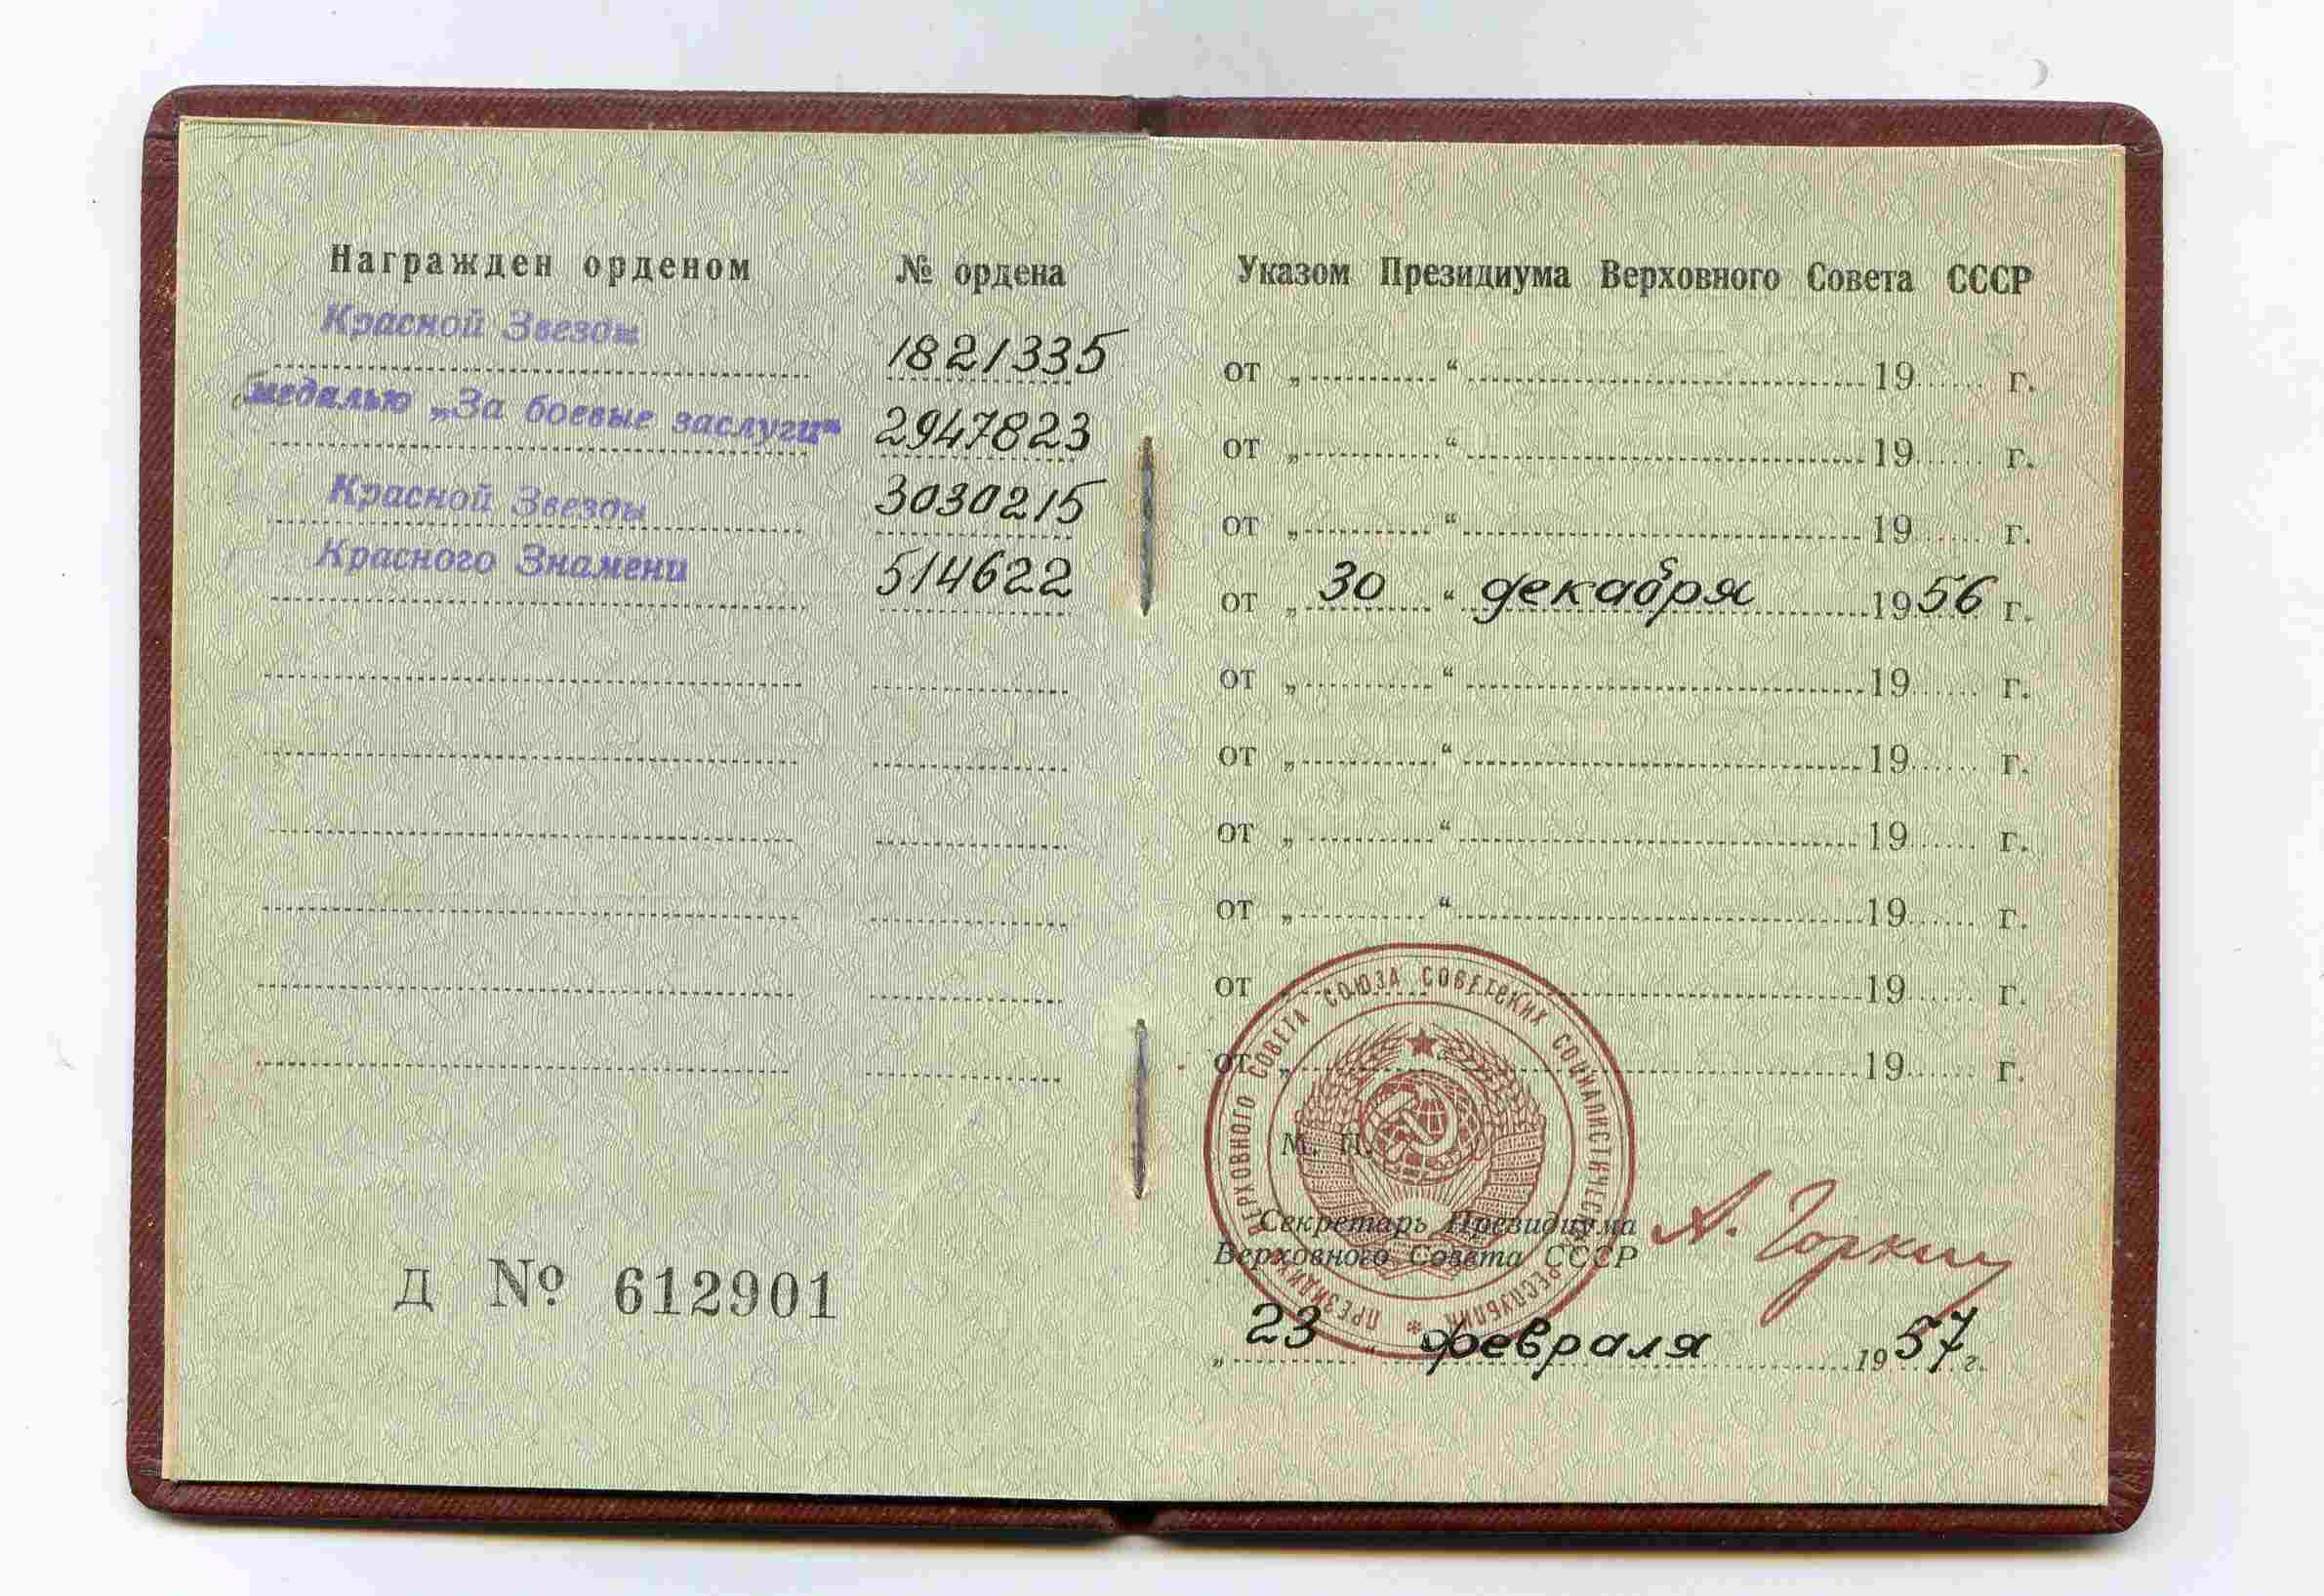 Награжден орденом № ордена
Красной Звезды 1821335
медалью „За боевые заслуги“ 2947823
Красной Звезды 3030215
Красного Знамени 514622
Д № 612901
Указом Президиума Верховного Совета СССР
от „ “ 19 г.
от „ “ 19 г.
от „ “ 19 г.
от „ 30 “ декабря 1956 г.
от „ “ 19 г.
от „ “ 19 г.
от „ “ 19 г.
от „ “ 19 г.
от 19 г.
от „ “ 19 г.
ПРЕЗИДИУМ ВЕРХОВНОГО СОВЕТА СОЮЗА СОВЕТСКИХ СОЦИАЛИСТИЧЕСКИХ РЕСПУБЛИК *
М. П.
Секретарь Президиума
Верховного Совета СССР А. Горкин
„ 23 “ февраля 1957 г.